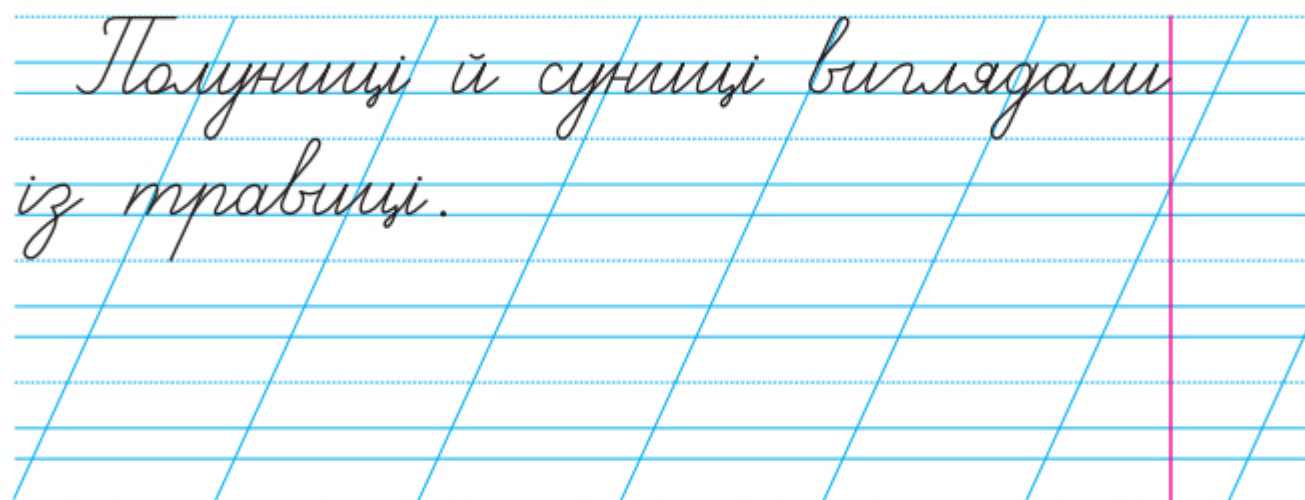 Полуниці й суниці виглядали
із травиці.